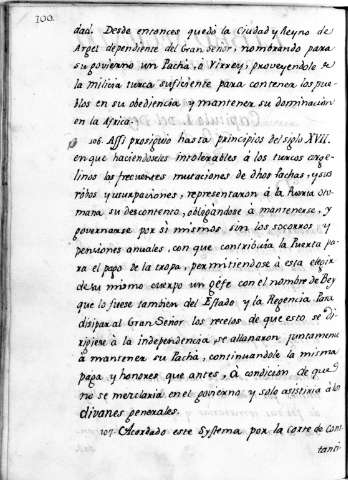 100.
dad. Desde entonces quedó la Ciudad y Reyno de
Argel dependiente del Gran Señor, nombrando para
su govierno un Pachá, ó Virrey, proveyendole de
la milicia turca suficiente para contener los pue-
blos en su obediencia y mantener su dominacion
en la Africa.
106. Assi prosiguio hasta principios del siglo XVII.
en que haciendoseles intolerables á los turcos arge-
linos las frecuentes mutaciones de dhos Pachas, y sus
robos y usurpaciones, representaron á la Puerta Oto-
mana su descontento, obligandose á mantenerse, y
governarse por si mismos sin los socorros y
pensiones anuales, con que contribuia la Puerta pa-
ra el pago de la tropa, permitiendose á esta elegir
de su mismo cuerpo un gefe con el nombre de Bey
que lo fuese tambien del Estado y la Regencia. Para
disipar al Gran Señor los recelos de que esto se di-
rigiese á la independencia, se allanaron juntamente
á mantener su Pachá, continuandole la misma
paga y honores que antes, á condicion de que
no se mezclaria en el govierno y solo asistiria á los
divanes generales.
107. Acordado este Systema por la Corte de Cons-
tanti-